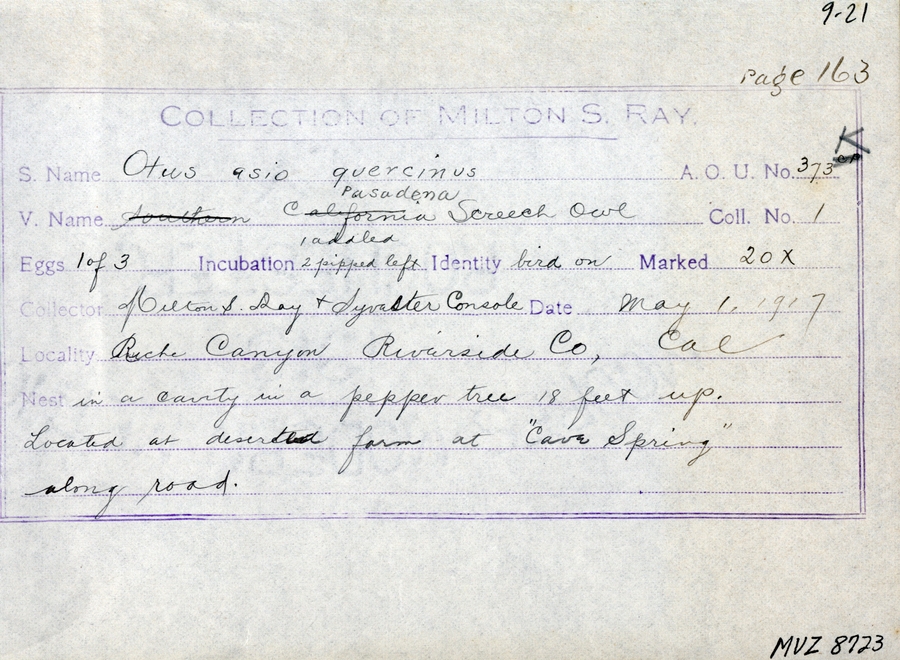 9-21
Page 163
COLLECTION OF MILTON S. RAY.
S. Name Otus asio quercinus A. O. U. No. 373
Pasadena
V. Name Southern California Screech Owl Coll. No. 1
1 addled
Eggs 1 of 3 Incubation 2 pipped left Identity bird on Marked 20X
Collector Milton S. Ray + Sylvester Console Date May 1, 1917
Locality Reche Canyon Riverside Co, Cal
Nest in a cavity in a pepper tree 18 feet up.
Located at deserted farm at "Cave Spring"
along road.
MVZ 8723